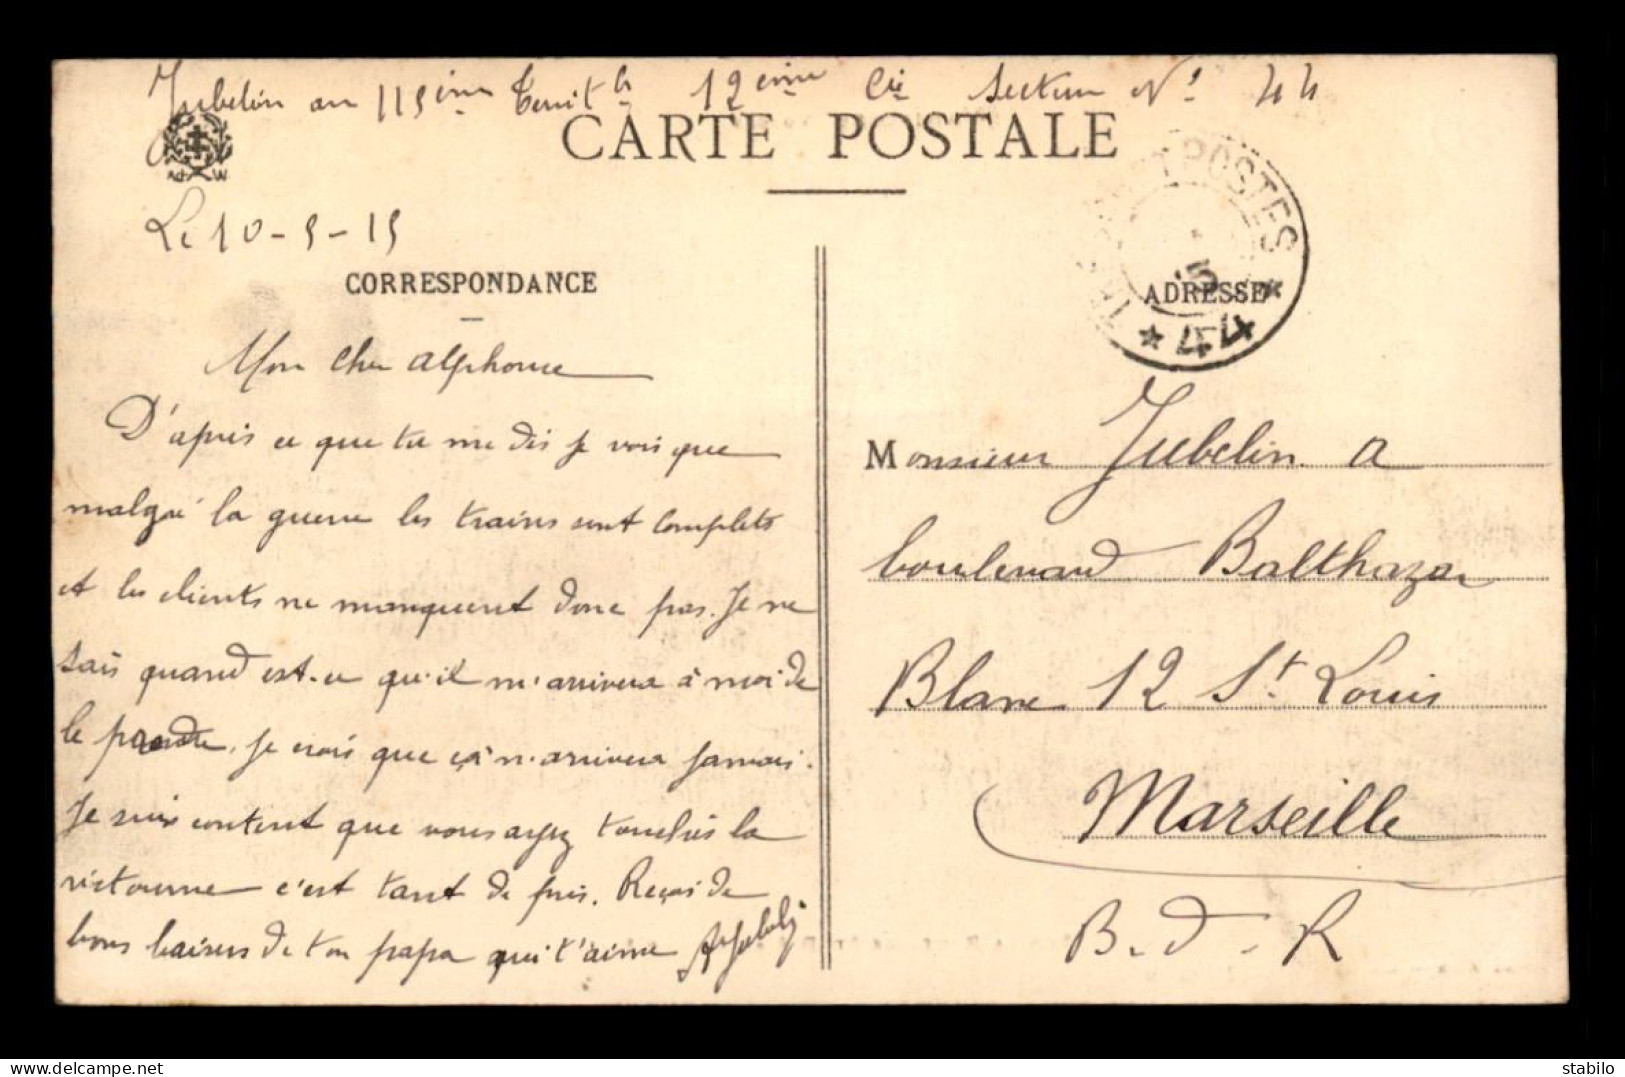 Jubelin au 115ème Territl 12ème Cie Section No 44
CARTE POSTALE
Le 10-5-15
CORRESPONDANCE
Mon cher Alphonse
D'après ce que tu me dis je vois que
malgré la guerre les trains sont complets
et les clients ne manquent donc pas. Je ne
sais quand est-ce qu'il m'arrivera à moi de
le prendre, je crois que ça n'arrivera jamais.
Je suis content que vous ayez touchés la
ristourne c'est tant de pris. Reçois de
bons baisers de ton papa qui t'aime
POSTES
15
* 44 *
ADRESSE
Monsieur Jubelin a
boulevard Balthazar
Blanc 12 St Louis
Marseille
B-d-R
stabilo
www.delcampe.net